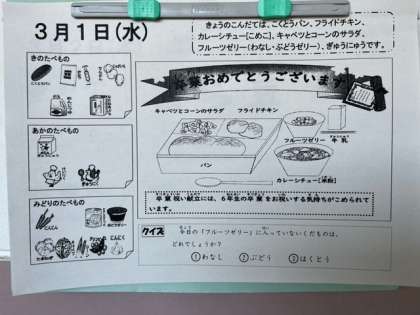 3月1日(水)
きょうのこんだては、こくとうパン、フライドチキン、
カレーシチュー[こめこ]、キャベツとコーンのサラダ、
フルーツゼリー(わなし・ぶどうゼリー)、ぎゅうにゅうです。
きのたべもの
あかのたべもの
ぎゅうにく
みどりのたべもの
にんじん
にんにく
卒業おめでとうございます
キャベツとコーンのサラダ
フライドチキン
パン
フルーツゼリー
牛乳
カレーシチュー[米粉]
卒業祝い献立には、6年生の卒業をお祝いする気持ちがこめられて
います。
クイズ
今日の「フルーツゼリー」に入っていないくだものは、
どれでしょうか?
①わなし ②ぶどう ③はくとう